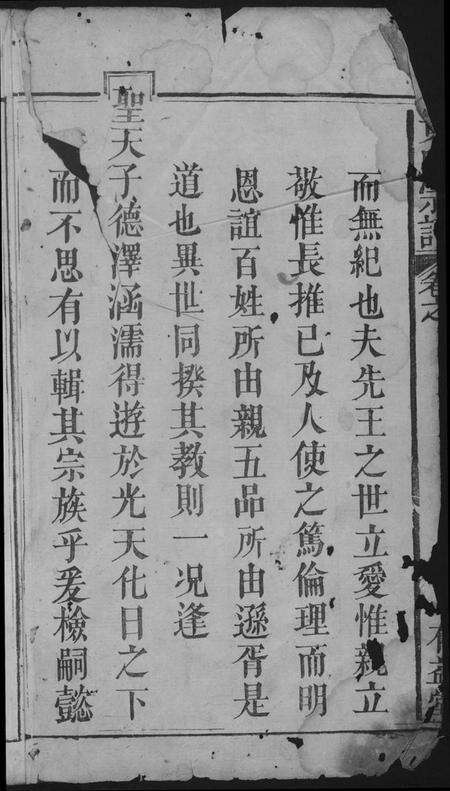 而無紀也夫先王之世立愛惟親立
敬惟長推已及人使之篤倫理而明
恩誼百姓所由親五品所由遜胥是
道也異世同揆其教則一况逢
聖天子德澤涵濡得遊於光天化日之下
而不思有以輯其宗族乎爰檢嗣懿
宗譜 卷之
益堂